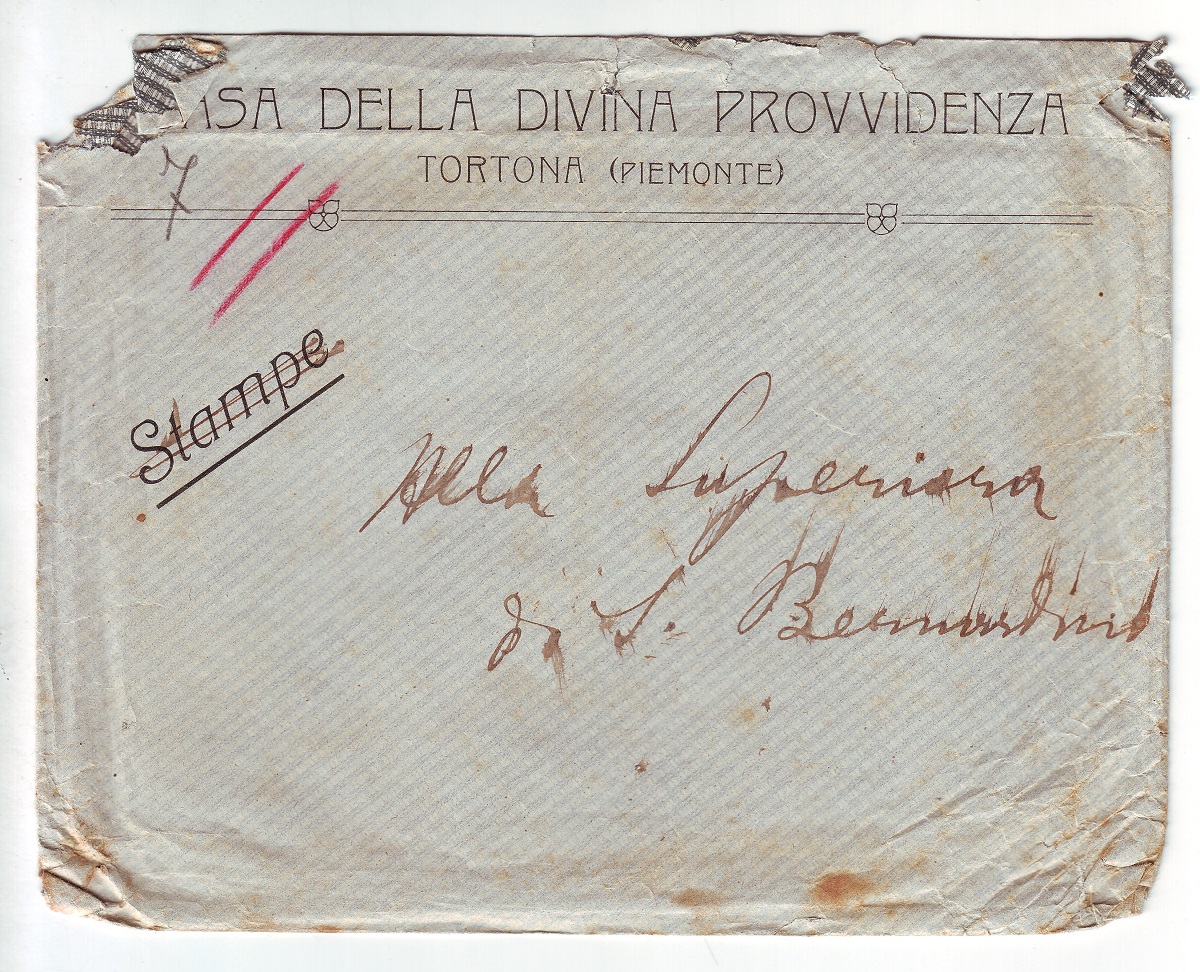 CASA DELLA DIVINA PROVVIDENZA
TORTONA (PIEMONTE)
7
Stampe
Alla Superiora
di S. Bernardino